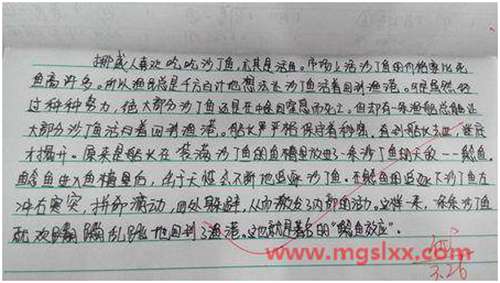 挪威人喜欢吃沙丁鱼,尤其是活鱼。市场上活沙丁鱼的价格要比死
鱼高许多。所以渔民总是千方百计地想法让沙丁鱼活着回到渔港。可是虽然经
过种种努力,绝大部分沙丁鱼还是在中途因窒息而死亡。但却有一条渔船总能让
大部分沙丁鱼活着回到渔港。船长严格保守着秘密,直到船长去世,谜底
才揭开。原来是船长在装满沙丁鱼的鱼槽里放进了一条沙丁鱼的天敌——鲶鱼。
鲶鱼进入鱼槽里后,由于天性会不断地追逐沙丁鱼。在鲶鱼的追逐下沙丁鱼左
冲右突,拼命游动,四处躲避,从而激发了内部的活力。这样一来,一条条沙丁鱼
就欢蹦乱跳地回到了渔港。这也就是著名的“鲶鱼效应”。
www.mgslxx.com
3.26